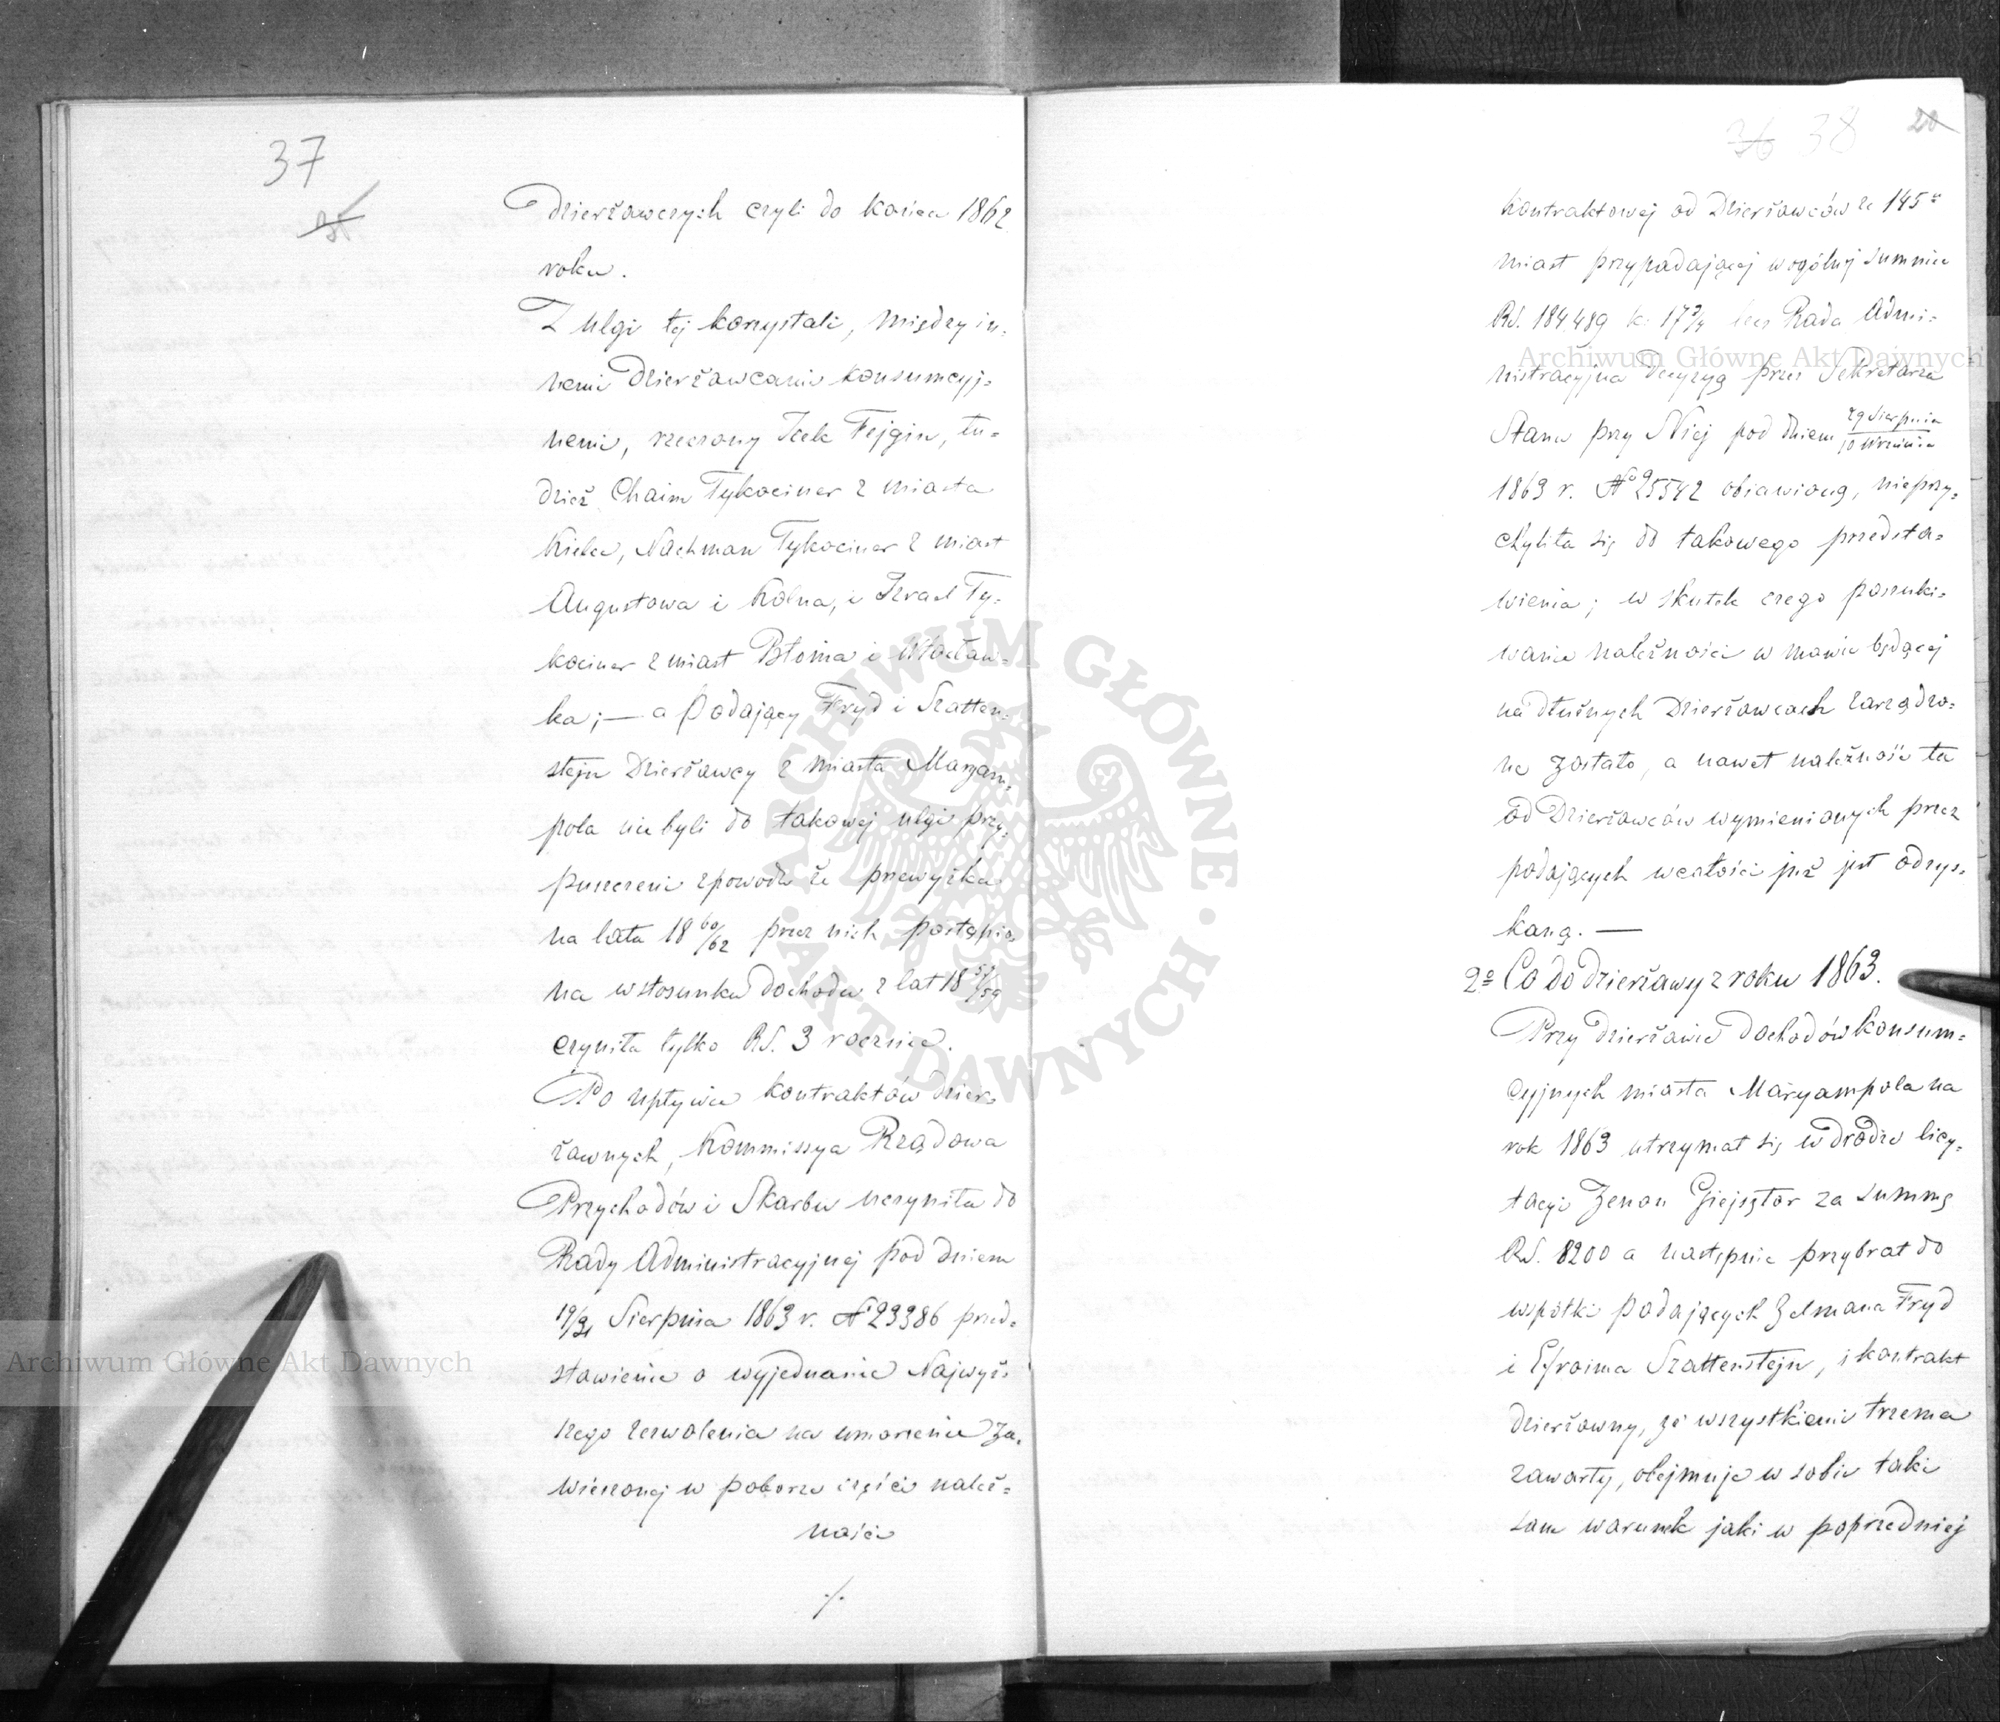 37
Dzierżawczych czyli do końca 1862
roku.
Z ulgi tej korzystali, między in-
nemi Dzierżawcami konsumcyj-
nemi, rzeczony Icek Fejgin, tu-
dzież Chaim Tykociner z miasta
Kielc, Nachman Tykociner z miast
Augustowa i Kolna, i Izrael Ty-
kociner z miast Błonia i Włocław-
ka; — a Podający Fryd i Szatten-
stejn Dzierżawcy z miasta Maryam-
pola nie byli do takowej ulgi przy-
puszczeni z powodu że przewyżka
na lata 18 60/62 przez nich postąpio-
na w stosunku dochodu z lat 18 57/59
czyniła tylko RS. 3 rocznie.
Po upływie kontraktów dzier-
żawnych, Kommissya Rządowa
Przychodów i Skarbu uczyniła do
Rady Administracyjnej pod dniem
19/31 Sierpnia 1863 r. N 23386 przed-
stawienie o wyjednanie Najwyż-
szego zezwolenia na umorzenie za-
wieszonej w poborze części należ-
ności
./.
36 38 20
kontraktowej od Dzierżawców ze 145
miast przypadającej w ogólnej summie
RS. 184489 k. 17 3/4 lecz Rada Admi-
nistracyjna decyzyą przez Sekretarza
Stanu przy Niej pod dniem 29 Sierpnia/10 Września
1863 r. No 25542 objawioną, nieprzy-
chyliła się do takowego przedsta-
wienia; w skutek czego poszuki-
wanie należności w mowie będącej
na dłużnych Dzierżawcach zarządzo-
ne zostało, a nawet należność ta
od Dzierżawców wymienionych przez
podających w całości już jest odzys-
kaną. —
2o Co do dzierżawy z roku 1863.
Przy dzierżawie dochodów konsum-
cyjnych miasta Maryampola na
rok 1863 utrzymał się w drodze licy-
tacyi Zenon Giejsztor za summę
RS. 8200 a następnie przybrał do
współki podających Zelmana Fryd
i Efroima Szattenstejn, i kontrakt
dzierżawny, ze wszystkiemi trzema
zawarty, obejmuje w sobie taki
sam warunek jaki w poprzedniej
Archiwum Główne Akt Dawnych
Archiwum Główne Akt Dawnych
ARCHIWUM GŁÓWNE · AKT DAWNYCH ·